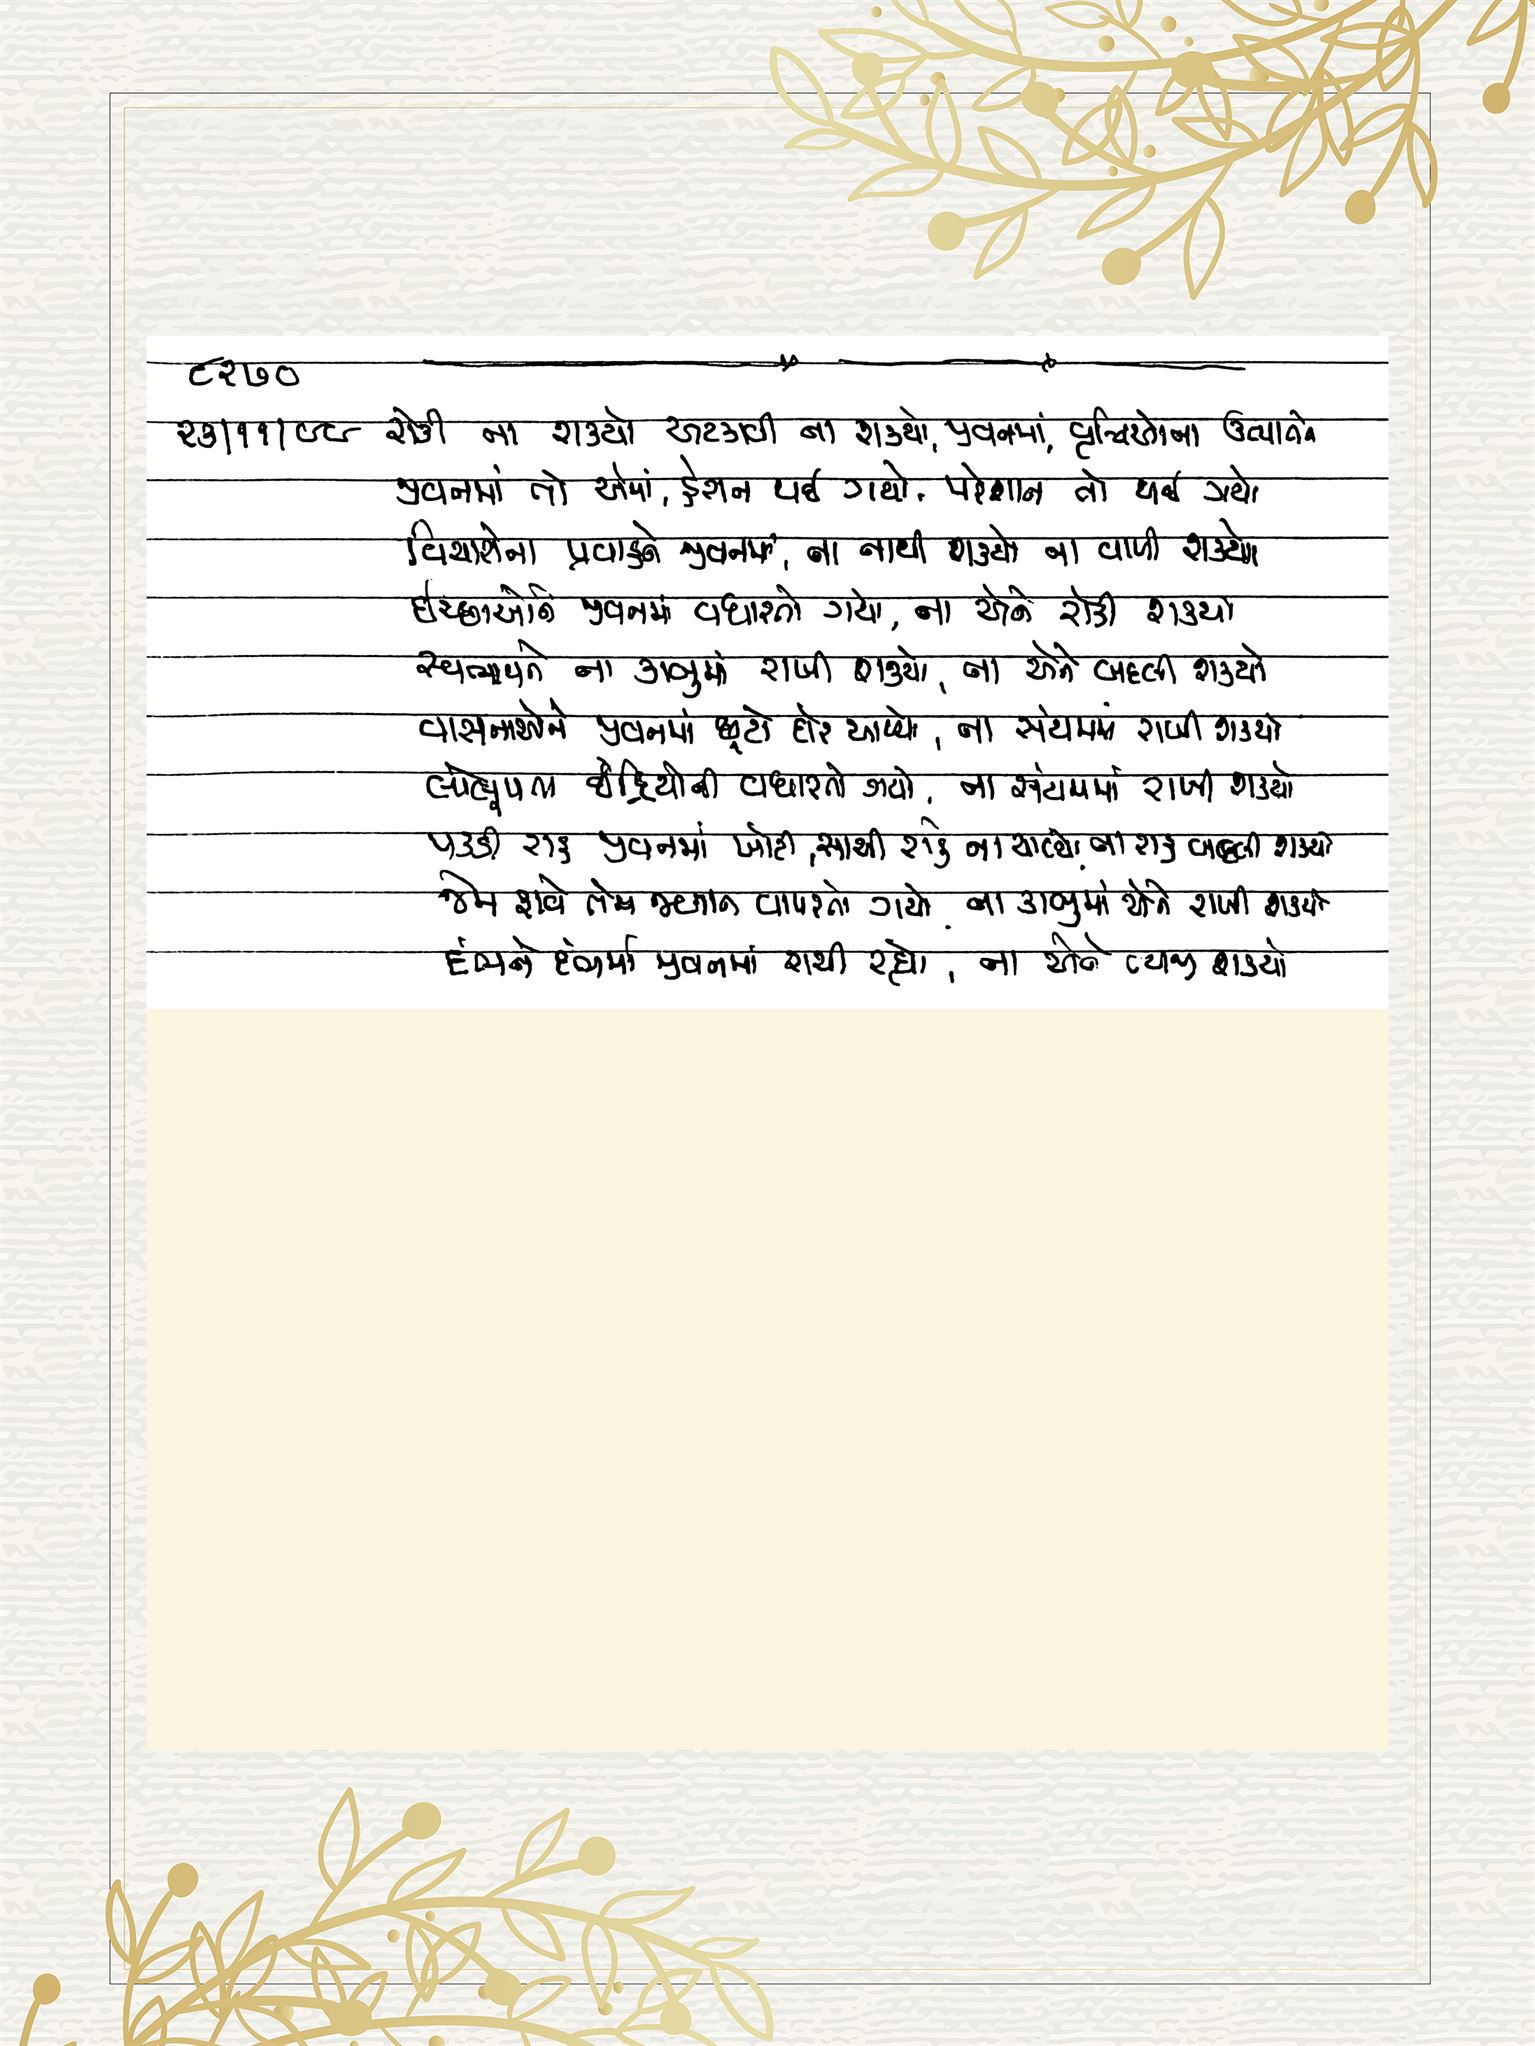 ૯૨૭૦
૨૩/૧૧/૯૯ રોકી ના શક્યો અટકાવી ના શક્યો, જીવનમાં, વૃત્તિઓના ઉત્પાતને
જીવનમાં તો એમાં, હેરાન થઈ ગયો, પરેશાન તો થઈ ગયો
વિચારોના પ્રવાહને જીવનમાં, ના નાથી શક્યો ના વાળી શક્યો
ઇચ્છાઓને જીવનમાં વધારતો ગયો, ના એને રોકી શક્યો
સ્વભાવને ના કાબુમાં રાખી શક્યો, ના એને બદલી શક્યો
વાસનાઓને જીવનમાં છૂટો દોર આપ્યો, ના સંયમમાં રાખી શક્યો
લોલૂપતા ઇંદ્રિયોની વધારતો ગયો, ના સંયમમાં રાખી શક્યો
પકડી રાહ જીવનમાં ખોટી, સાચી રાહે ના ચાલ્યો, ના રાહ બદલી શક્યો
જેમ ફાવે તેમ જબાન વાપરતો ગયો, ના કાબુમાં એને રાખી શક્યો
દંભને દંભમાં જીવનમાં રાચી રહ્યો, ના એને ત્યજી શક્યો